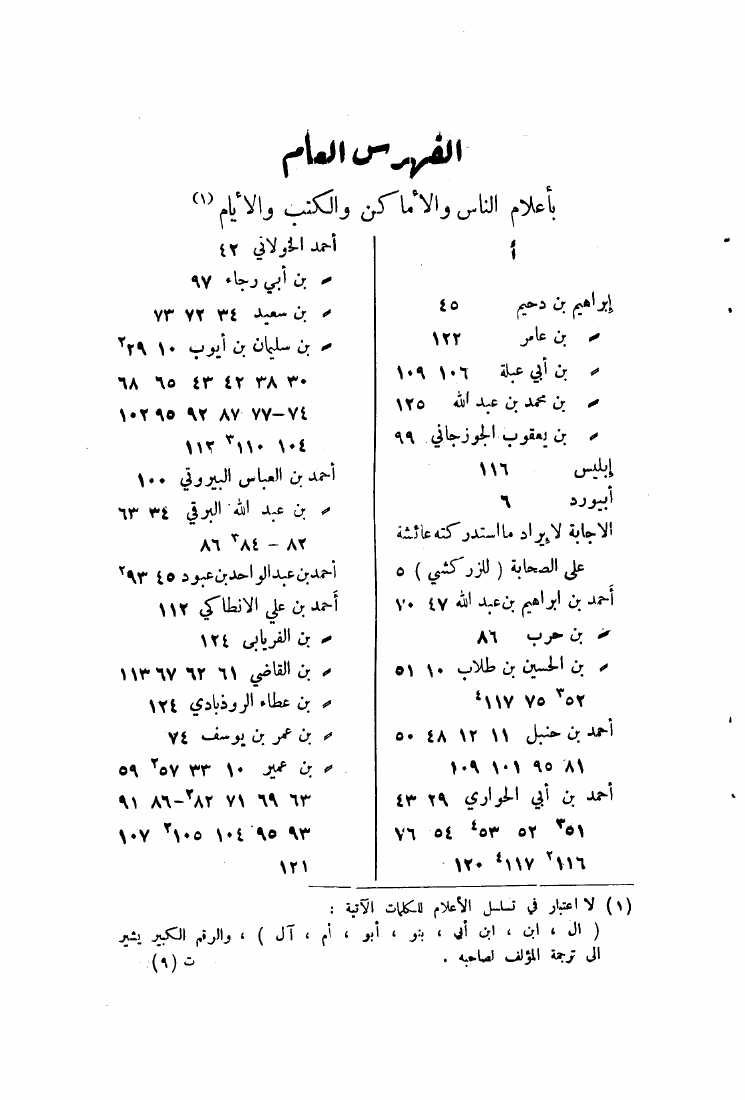 الفهرس العام
بأعلام الناس والأماكن والكتب والأيام (١)
أ
إبراهيم بن دحيم ٤٥
〃 بن عامر ١٢٢
〃 بن أبي عبلة ١٠٦ ١٠٩
〃 بن محمد بن عبد الله ١٢٥
〃 بن يعقوب الجوزجاني ٩٩
إبليس ١١٦
أبيورد ٦
الاجابة لايراد ما استدركته عائشة
على الصحابة ( للزركشي ) ٥
أحمد بن ابراهيم بن عبد الله ٤٧ ٧٠
〃 بن حرب ٨٦
〃 بن الحسين بن طلاب ١٠ ٥١
٥٢³ ٧٥ ١١٧⁴
أحمد بن حنبل ١١ ١٢ ٤٨ ٥٠
٨١ ٩٥ ١٠١ ١٠٩
أحمد بن أبي الحواري ٢٩ ٤٣
٥١³ ٥٢ ٥٣⁴ ٥٤ ٧٦
١١٦² ١١٧⁴ ١٢٠
أحمد الخولاني ٤٢
〃 بن أبي رجاء ٩٧
〃 بن سعيد ٣٤ ٧٢ ٧٣
〃 بن سليمان بن أيوب ١٠ ٢٩²
٣٠ ٣٨ ٤٢ ٤٣ ٦٥ ٦٨
٧٤-٧٧ ٨٧ ٩٢ ٩٥ ١٠٢
١٠٤ ١١٠³ ١١٢
أحمد بن العباس البيروتي ١٠٠
〃 بن عبد الله البرقي ٣٤ ٦٣
٨٢ - ٨٤³ ٨٦
أحمد بن عبد الواحد بن عبود ٤٥ ٩٣²
أحمد بن علي الانطاكي ١١٢
〃 بن الفريابي ١٢٤
〃 بن القاضي ٦١ ٦٢ ٦٧ ١١٣
〃 بن عطاء الروذبادي ١٢٤
〃 بن عمر بن يوسف ٧٤
〃 بن عمير ١٠ ٣٣ ٥٧² ٥٩
٦٣ ٦٩ ٧١ ٨٢²-٨٦ ٩١
٩٣ ٩٥ ١٠٤ ١٠٥² ١٠٧
١٢١
(١) لا اعتبار في تسلسل الأعلام للكلمات الآتية :
( ال ، ابن ، ابن أبي ، بنو ، أبو ، أم ، آل ) ، والرقم الكبير يشير
الى ترجمة المؤلف لصاحبه .
ت (٩)